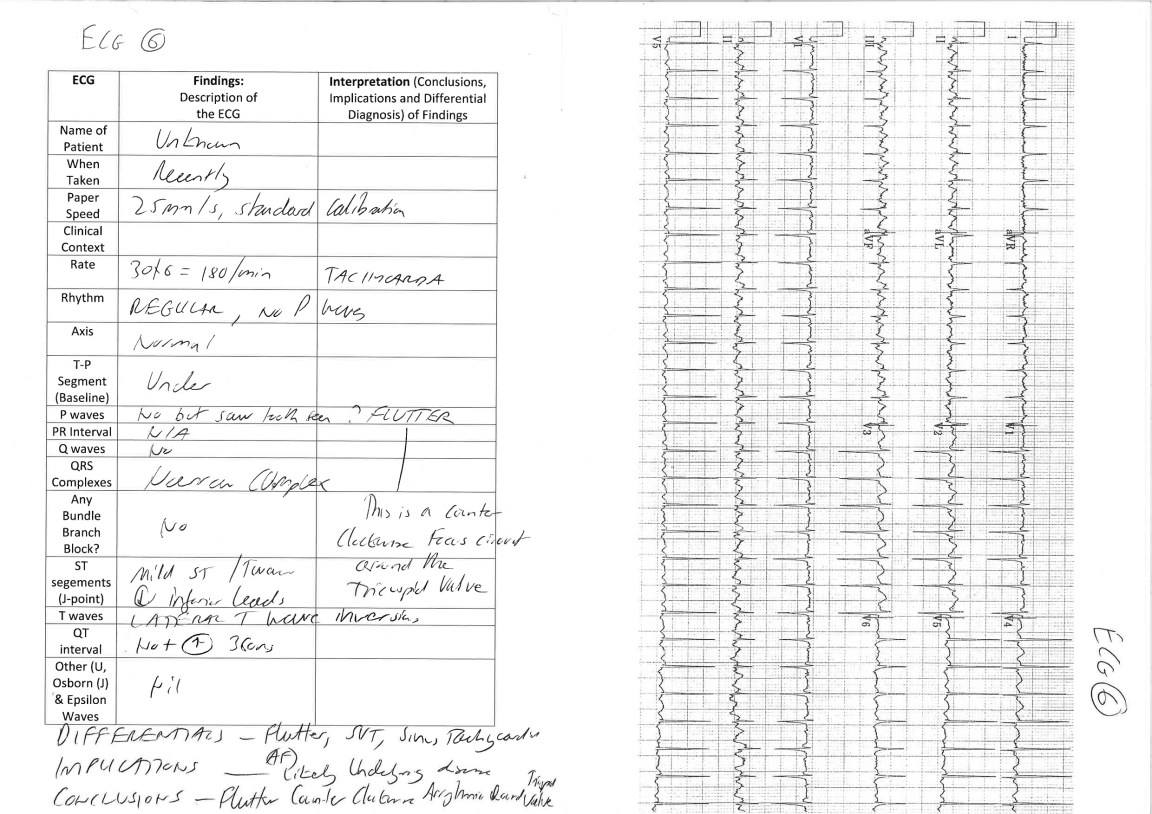 ECG ⑥
ECG
Findings:
Description of
the ECG
Interpretation (Conclusions,
Implications and Differential
Diagnosis) of Findings
Name of
Patient
Unknown
When
Taken
Recently
Paper
Speed
25mm/s, standard Calibration
Clinical
Context
Rate
30x6 = 180/min
TACHYCARDA
Rhythm
REGULAR, No P waves
Axis
Normal
T-P
Segment
(Baseline)
Under
P waves
No but saw tooth seen ? FLUTTER
PR Interval
N/A
Q waves
No
QRS
Complexes
Narrow Complex
Any
Bundle
Branch
Block?
No
This is a counter
Clockwise Focus circuit
around the
Tricuspid Valve
ST
segements
(J-point)
Mild ST / Twave
↓ inferior leads
T waves
LATERAL T wave inversion
QT
interval
Not ↑ 360ms
Other (U,
Osborn (J)
& Epsilon
Waves
Nil
DIFFERENTIALS - Flutter, SVT, Sinus Tachycardia
(AF)
IMPLICATIONS — Likely Underlying disease
CONCLUSIONS - Flutter Counter Clockwise Arrythmia Round Tricuspid Valve
I
aVR
V1
V4
II
aVL
V2
V5
III
aVF
V3
V6
V1
II
V5
ECG ⑥